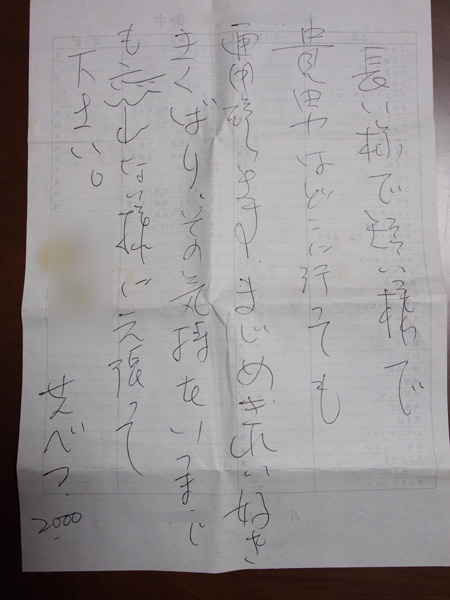 長い様で短い様で
貴男はどこに行っても
通用 まじめ、きれい好き
きくばり、その気持をいつまで
も忘れない様に 張って
下さい。
せんべつ. 2000